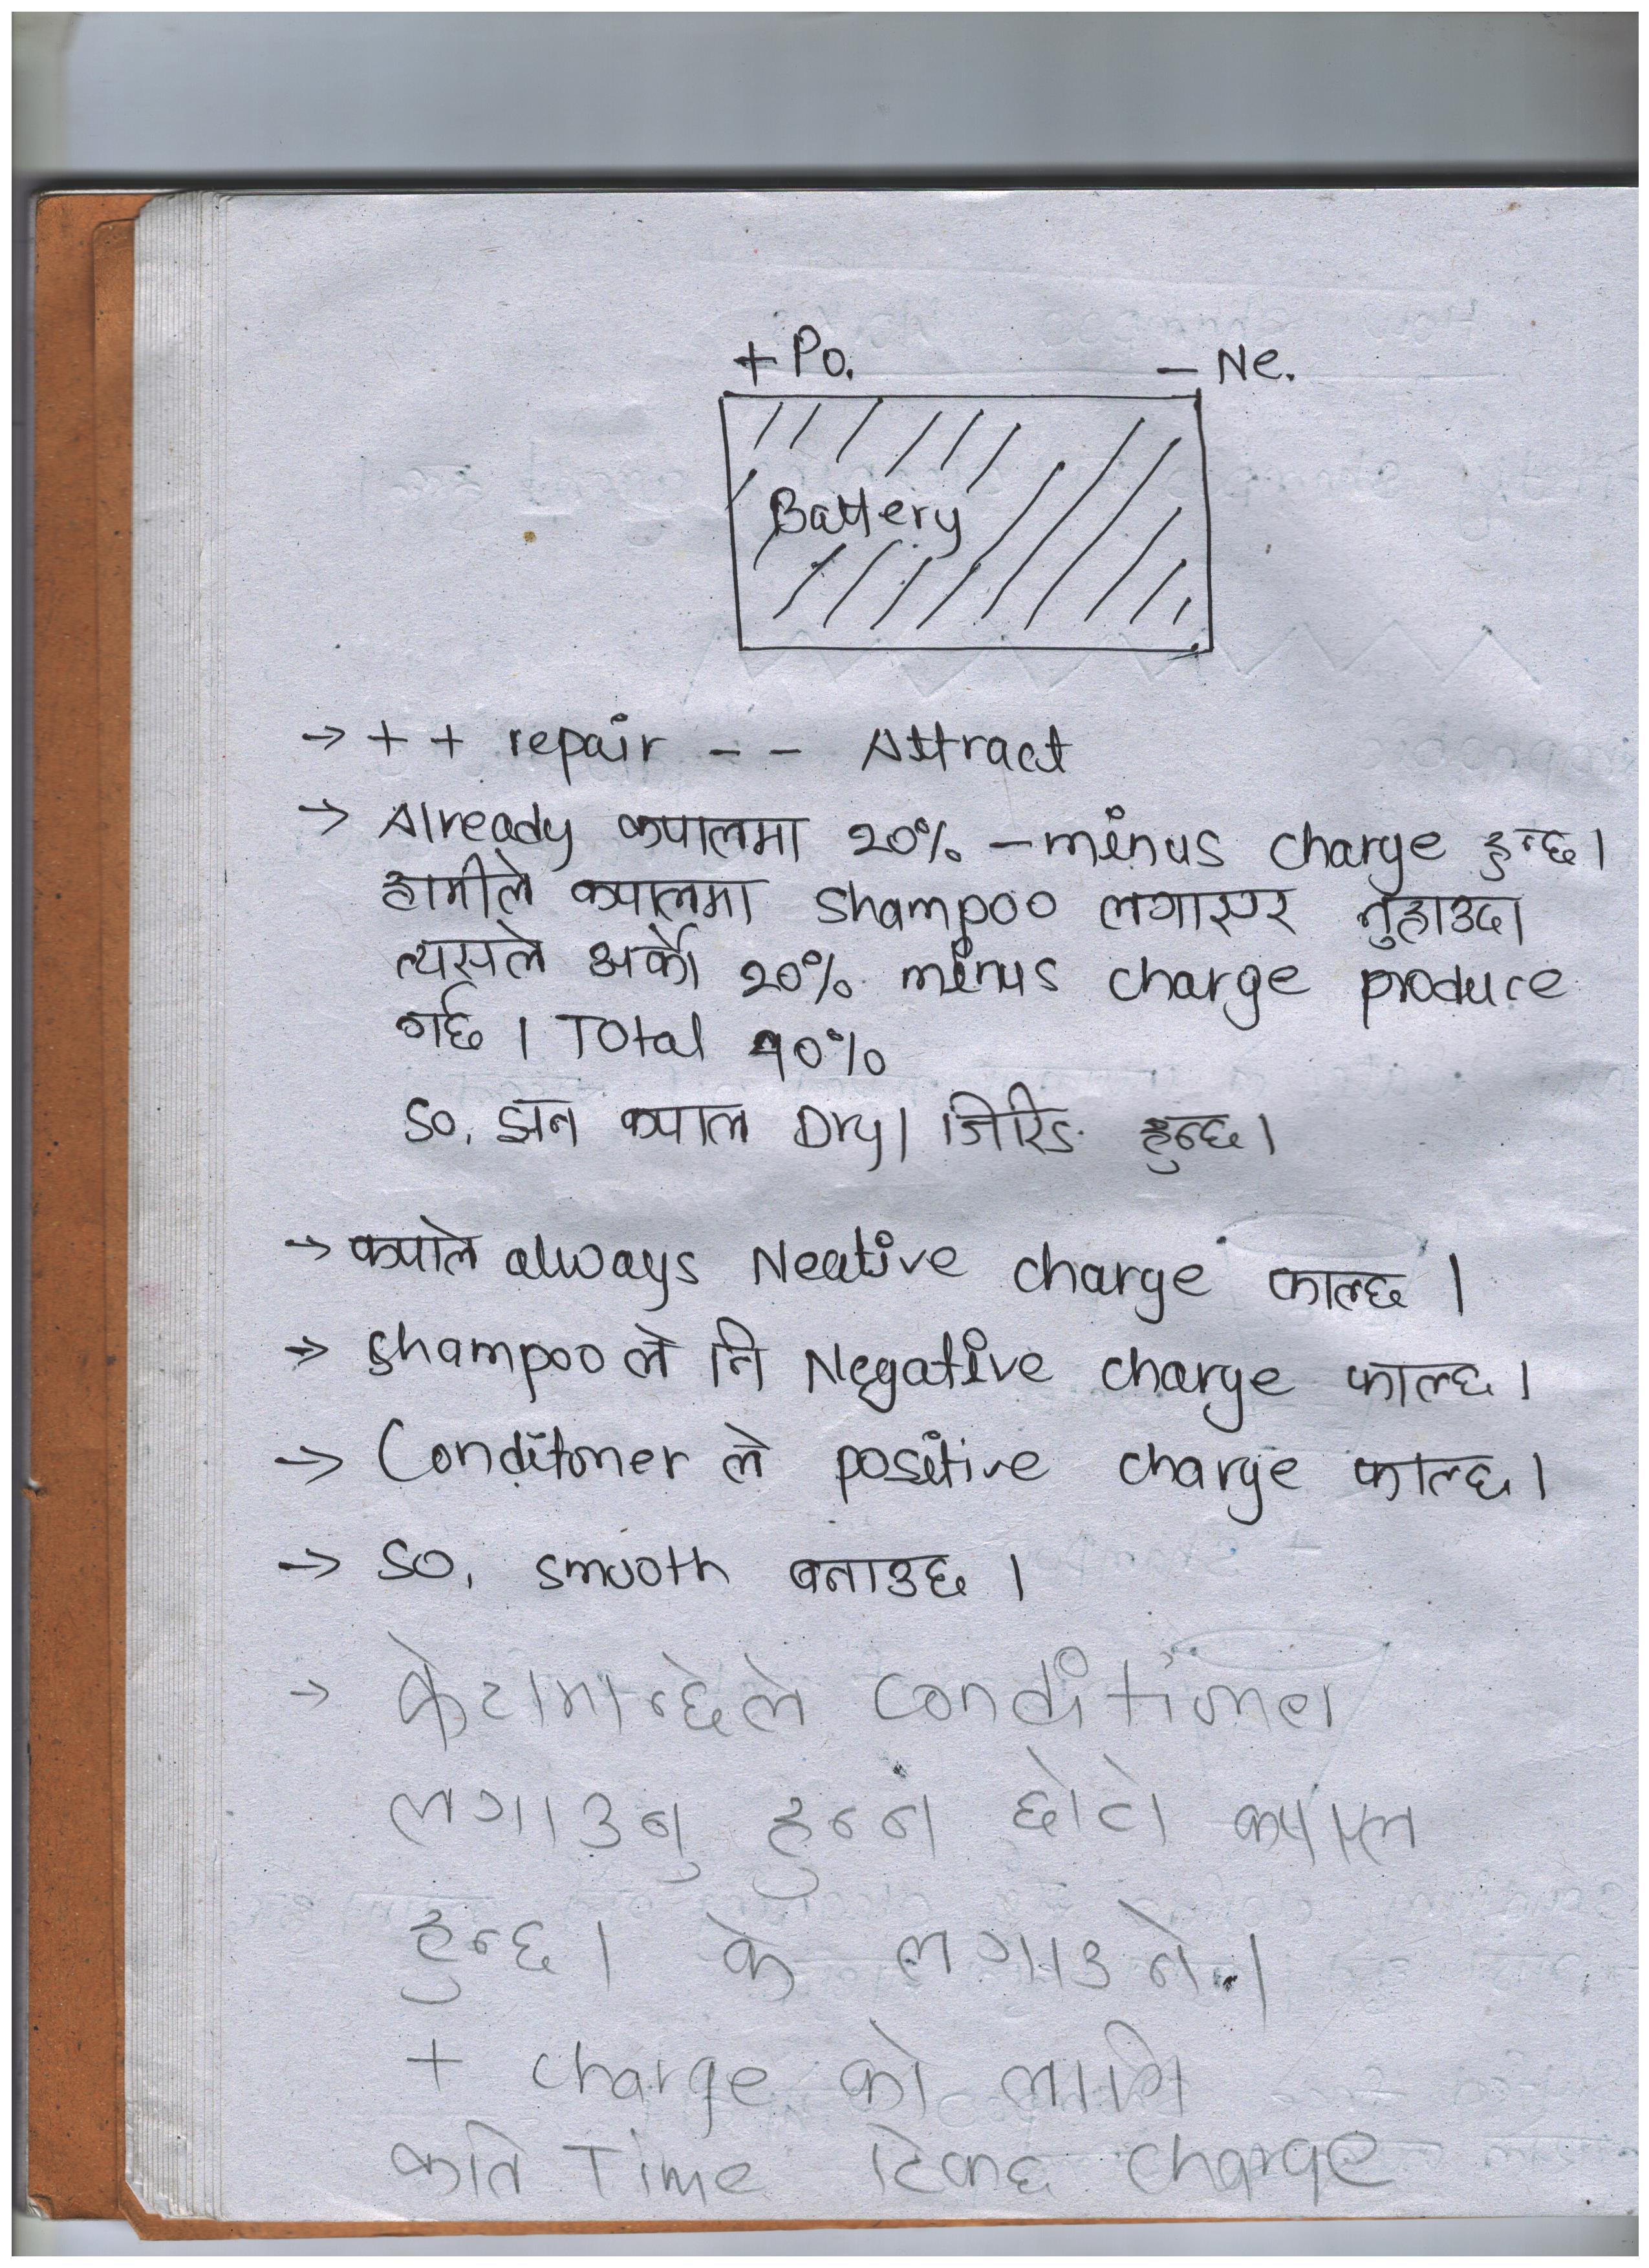 + Po. - Ne.
Battery
→ + + repair - - Attract
→ Already कपालमा २०% - minus charge हुन्छ।
हामीले कपालमा shampoo लगाएर नुहाउदा
त्यसले अर्को २०% minus charge produce
गर्छ । Total ४०%
so, झन कपाल Dry। जिरिङ हुन्छ।
→ कपाले always Neative charge फाल्छ ।
→ shampoo ले नि Negative charge फाल्छ ।
→ Conditoner ले positive charge फाल्छ ।
→ so, smooth बनाउछ ।
→ केटामान्छेले conditioner
लगाउनु हुन्न छोटो कपाल
हुन्छ । के लगाउने ।
+ charge को लागि
कति Time टिक्छ charge